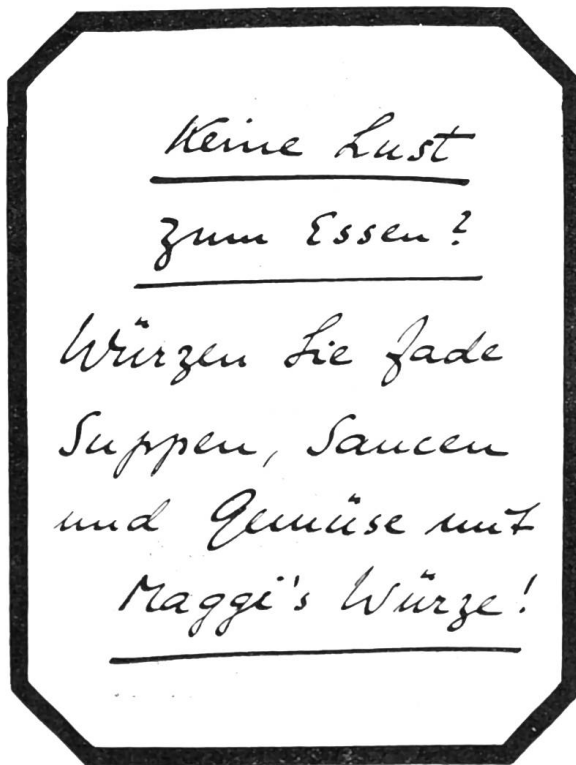 Keine Lust
zum Essen?
Würzen Sie fade
Suppen, Saucen
und Gemüse mit
Maggi's Würze!